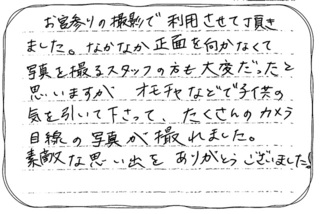 お宮参りの撮影で利用させて頂き
ました。なかなか正面を向かなくて
写真を撮るスタッフの方も大変だったと
思いますが オモチャなどで子供の
気を引いて下さって、たくさんのカメラ
目線の写真が撮れました。
素敵な思い出を ありがとうございました!